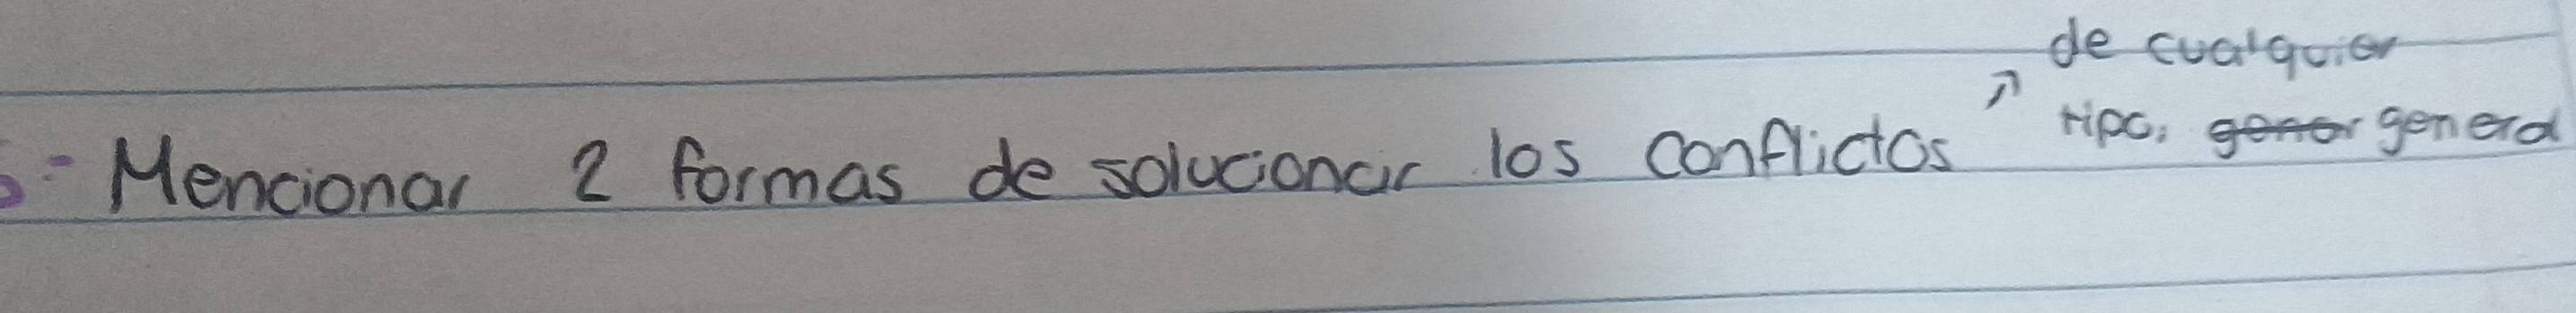 de cualquier
- Mencionar 2 formas de solucionar los conflictos ↗ tipo, general